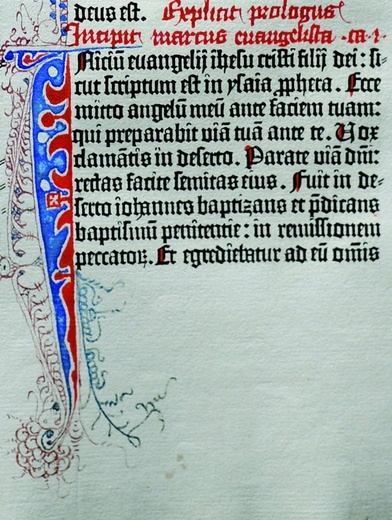 deus est. Explicit prologus
Incipit marcus euangelista .ca.i.
Iniciū euangelij ihesu cristi filij dei: si-
cut scriptum est in ysaia ꝓpheta. Ecce
mitto angelū meū ante faciem tuam:
qui preparabit viā tuā ante te. Vox
clamātis in deserto. Parate viā dn̄i:
rectas facite semitas eius. Fuit in de-
serto iohannes baptizans et p̄dicans
baptismū penitentie: in remissionem
peccatoꝝ. Et egrediebatur ad eū om̄is